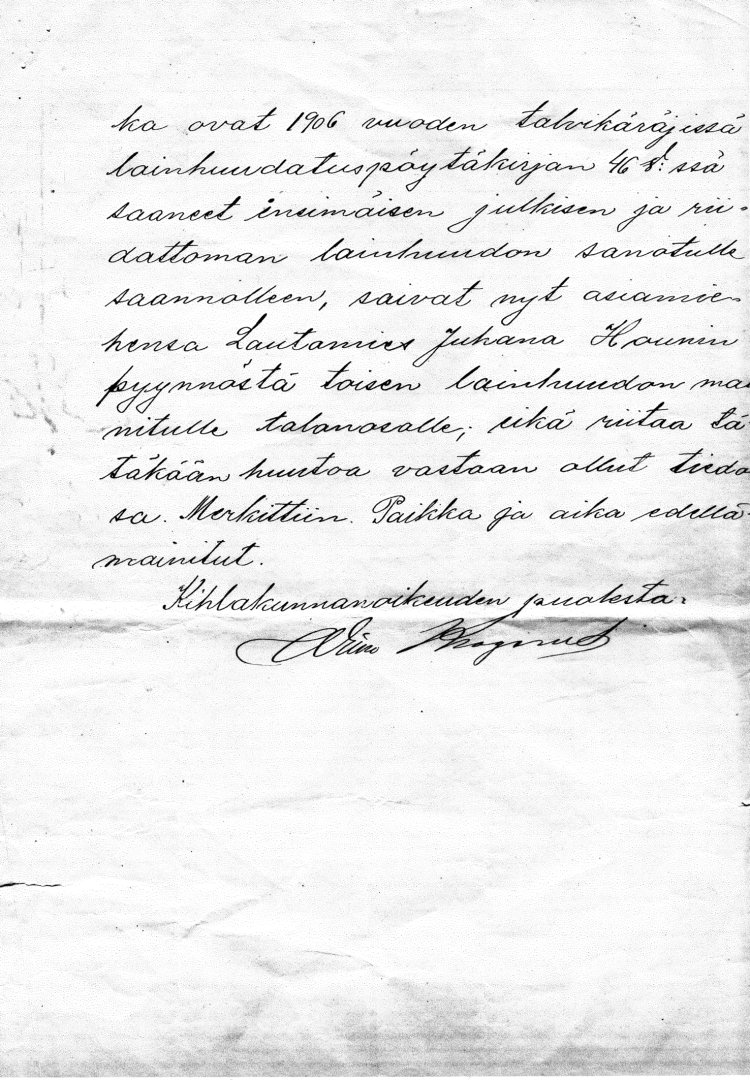 ka ovat 1906 vuoden talvikäräjissä
lainhuudatuspöytäkirjan 46 §:ssä
saaneet ensimäisen julkisen ja rii-
dattoman lainhuudon sanotulle
saannolleen, saivat nyt asiamie-
hensa Lautamies Juhana Hounin
pyynnöstä toisen lainhuudon mai
nitulle talonosalle; eikä riitaa tä
täkään huutoa vastaan ollut tiedos
sa. Merkittiin. Paikka ja aika edellä-
mainitut.
Kihlakunnanoikeuden puolesta: